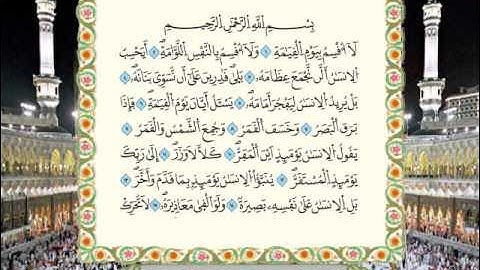 بِسْمِ اللَّهِ الرَّحْمَٰنِ الرَّحِيمِ
لَآ أُقْسِمُ بِيَوْمِ الْقِيَٰمَةِ وَلَآ أُقْسِمُ بِالنَّفْسِ اللَّوَّامَةِ أَيَحْسِبُ
الْإِنسَٰنُ أَلَّن نَّجْمَعَ عِظَامَهُۥ بَلَىٰ قَٰدِرِينَ عَلَىٰٓ أَن نُّسَوِّىَ بَنَانَهُۥ
بَلْ يُرِيدُ الْإِنسَٰنُ لِيَفْجُرَ أَمَامَهُۥ يَسْـَٔلُ أَيَّانَ يَوْمُ الْقِيَٰمَةِ فَإِذَا
بَرَقَ الْبَصَرُ وَخَسَفَ الْقَمَرُ وَجُمِعَ الشَّمْسُ وَالْقَمَرُ
يَقُولُ الْإِنسَٰنُ يَوْمَئِذٍ أَيْنَ الْمَفَرُّ كَلَّا لَا وَزَرَ إِلَىٰ رَبِّكَ
يَوْمَئِذٍ الْمُسْتَقَرُّ يُنَبَّؤُا۟ الْإِنسَٰنُ يَوْمَئِذٍ بِمَا قَدَّمَ وَأَخَّرَ
بَلِ الْإِنسَٰنُ عَلَىٰ نَفْسِهِۦ بَصِيرَةٌ وَلَوْ أَلْقَىٰ مَعَاذِيرَهُۥ لَا تُحَرِّكْ